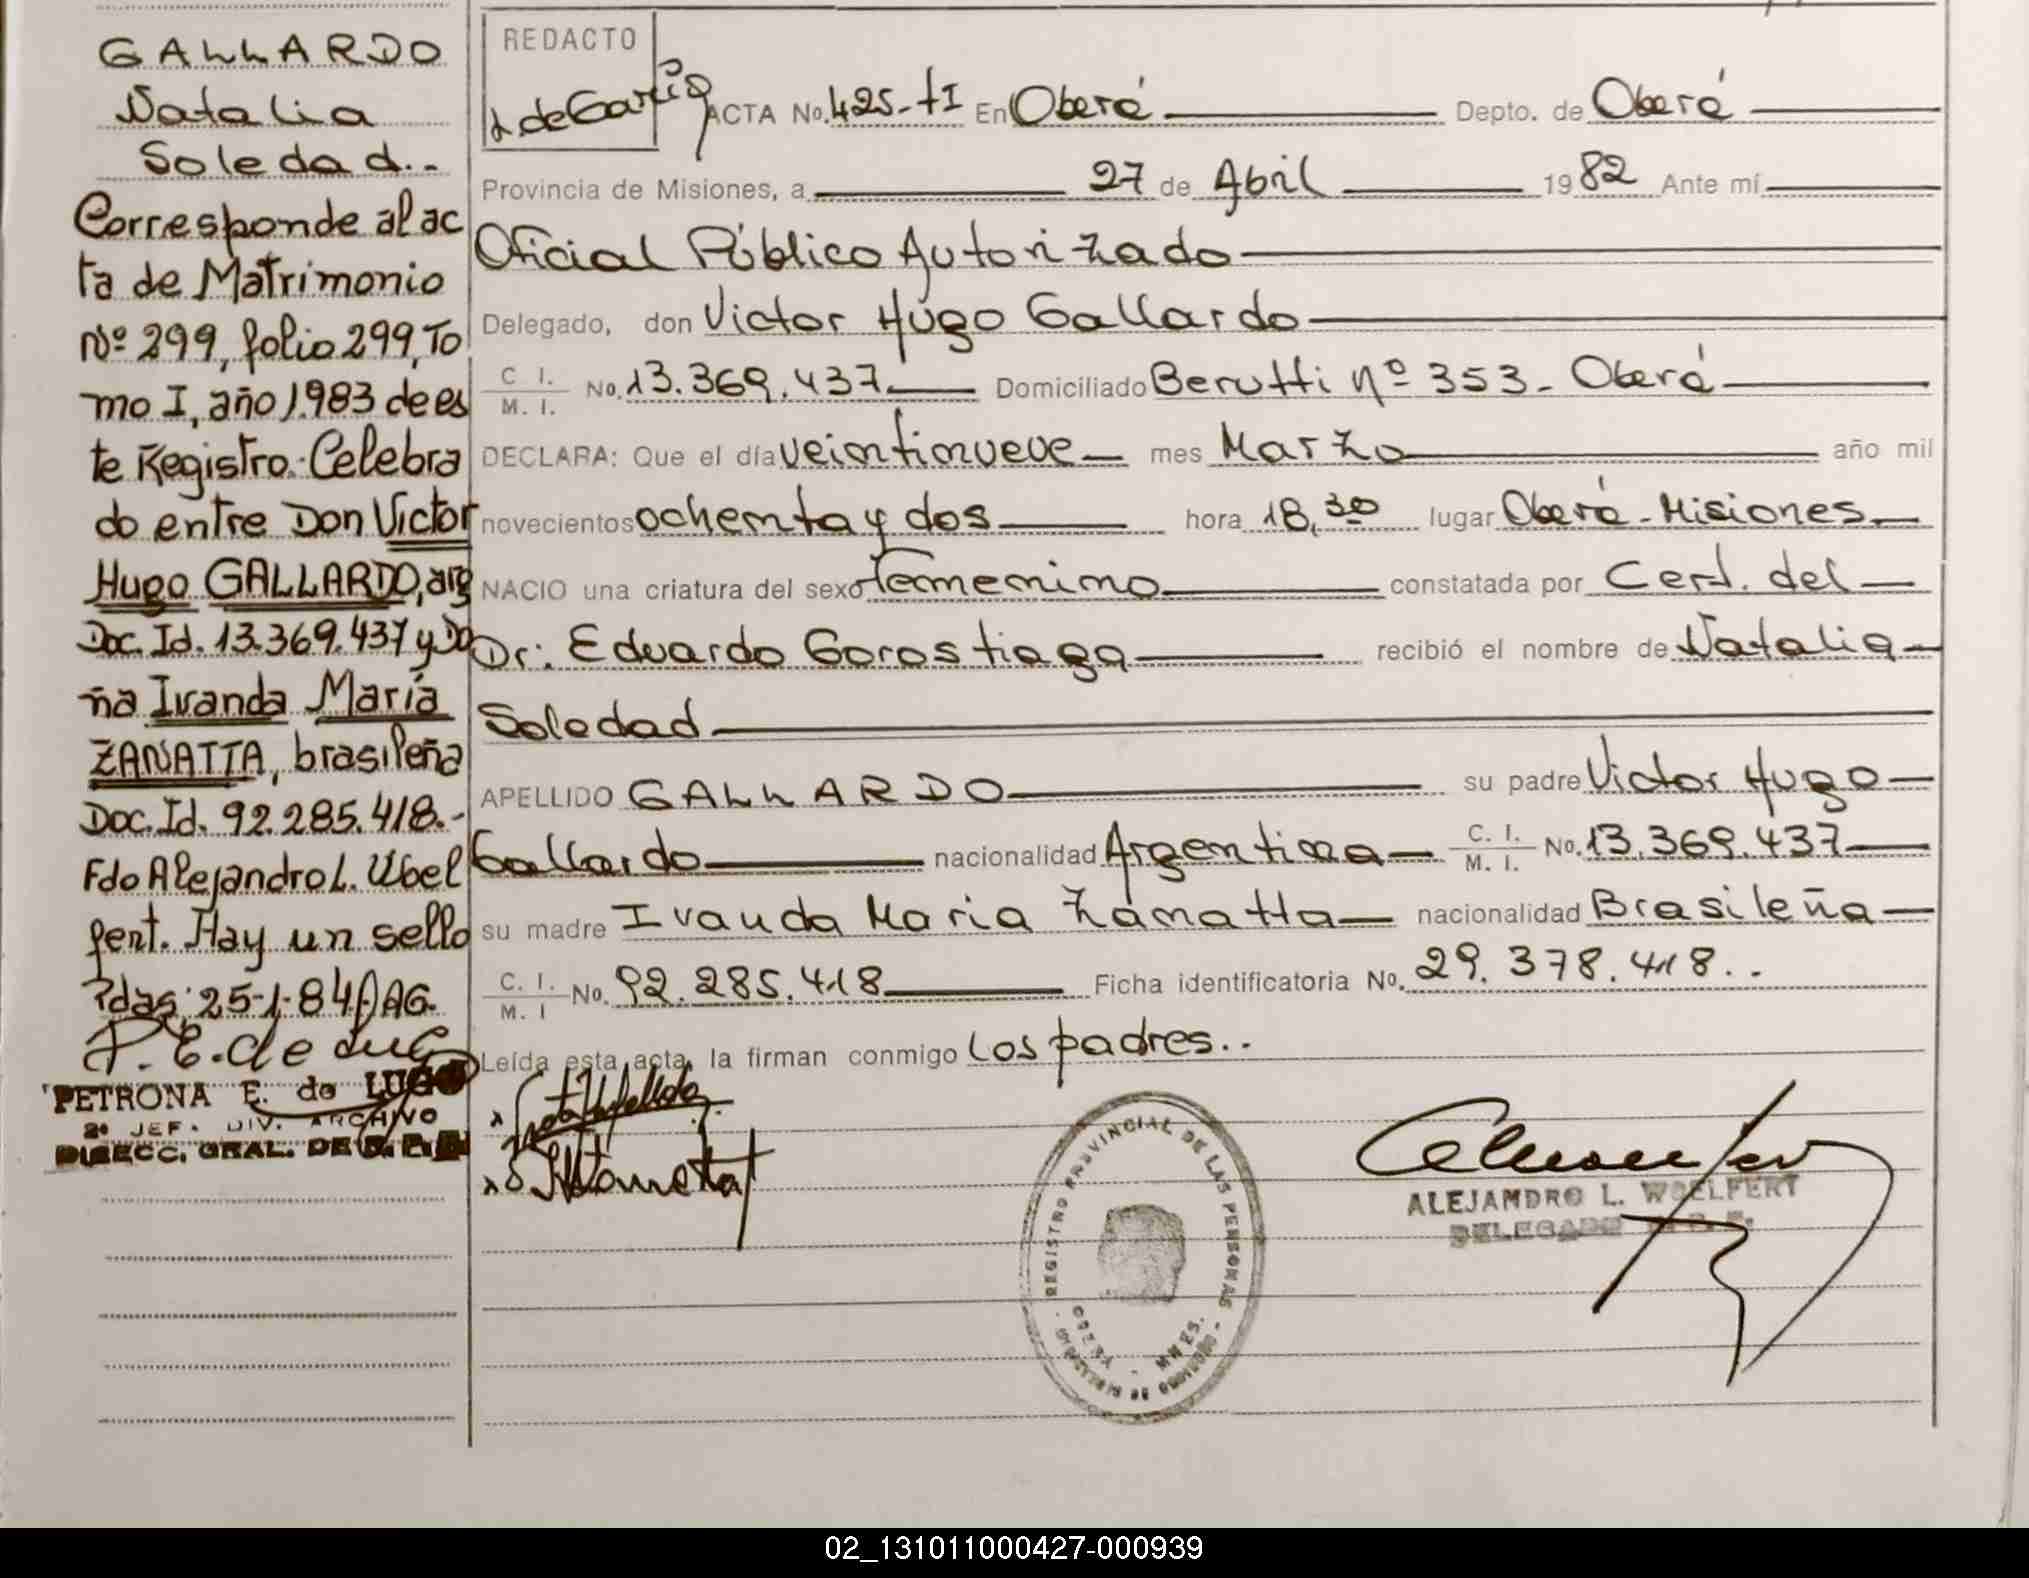 GALLARDO
Natalia
Soledad.-
Corresponde al ac
ta de Matrimonio
Nº 299, folio 299, To
mo I, año 1.983 de es
te Registro. Celebra
do entre Don Victor
Hugo GALLARDO, arg
Doc. Id. 13.369.437 y Do
ña Ivanda María
ZANATTA, brasileña
Doc. Id. 92.285.418.-
Fdo Alejandro L. Wöel
fert. Hay un sello
Pdas, 25-1-84
P. E. de Lugo
PETRONA E. de LUGO
2º JEF. DIV. ARCHIVO
DIRECC. GRAL. DE R. P.
REDACTO
de García
ACTA No. 425-tI En Oberá Depto. de Oberá
Provincia de Misiones, a 27 de Abril 1982 Ante mí
Oficial Público Autorizado
Delegado, don Victor Hugo Gallardo
C. I. / M. I. No. 13.369.437 Domiciliado Berutti nº 353- Oberá
DECLARA: Que el día veintinueve mes Marzo año mil
novecientos ochenta y dos hora 18,30 lugar Oberá-Misiones
NACIO una criatura del sexo Femenino constatada por Cert. del
Dr: Eduardo Gorostiaga recibió el nombre de Natalia
Soledad
APELLIDO GALLARDO su padre Victor Hugo
Gallardo nacionalidad Argentina C. I. / M. I. No. 13.369.437
su madre Ivanda Maria Zanatta nacionalidad Brasileña
C. I. / M. I No. 92.285.418 Ficha identificatoria No. 29.378.418..
Leída esta acta, la firman conmigo los padres..
REGISTRO PROVINCIAL DE LAS PERSONAS
OBERA - MNES.
ALEJANDRO L. WOELFERT
DELEGADO R. P.
02_131011000427-000939